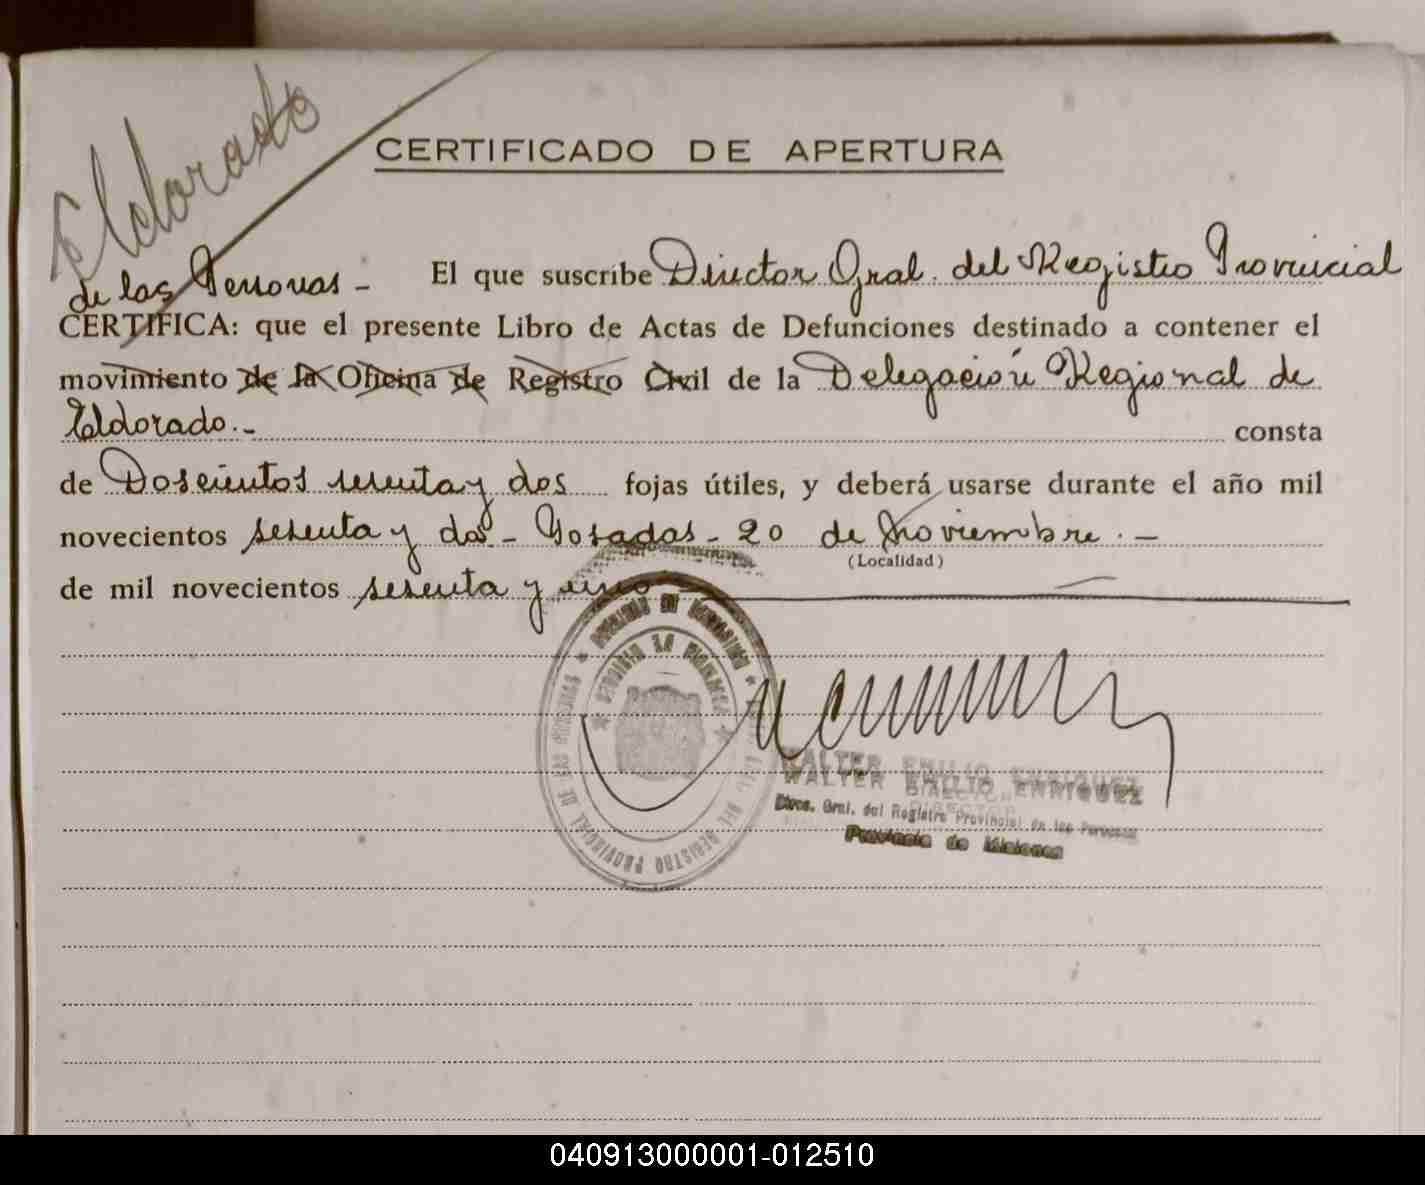 Eldorado
CERTIFICADO DE APERTURA
El que suscribe Director Gral. del Registro Provincial
de las Personas -
CERTIFICA: que el presente Libro de Actas de Defunciones destinado a contener el
movimiento de la Oficina de Registro Civil de la Delegación Regional de
Eldorado.- consta
de Doscientos sesenta y dos fojas útiles, y deberá usarse durante el año mil
novecientos sesenta y dos - Posadas - 20 de Noviembre. -
(Localidad)
de mil novecientos sesenta y uno
WALTER EMILIO ENRIQUEZ
DIRECTOR
Direc. Gral. del Registro Provincial de las Personas
Provincia de Misiones
DEL REGISTRO PROVINCIAL DE LAS PERSONAS
040913000001-012510